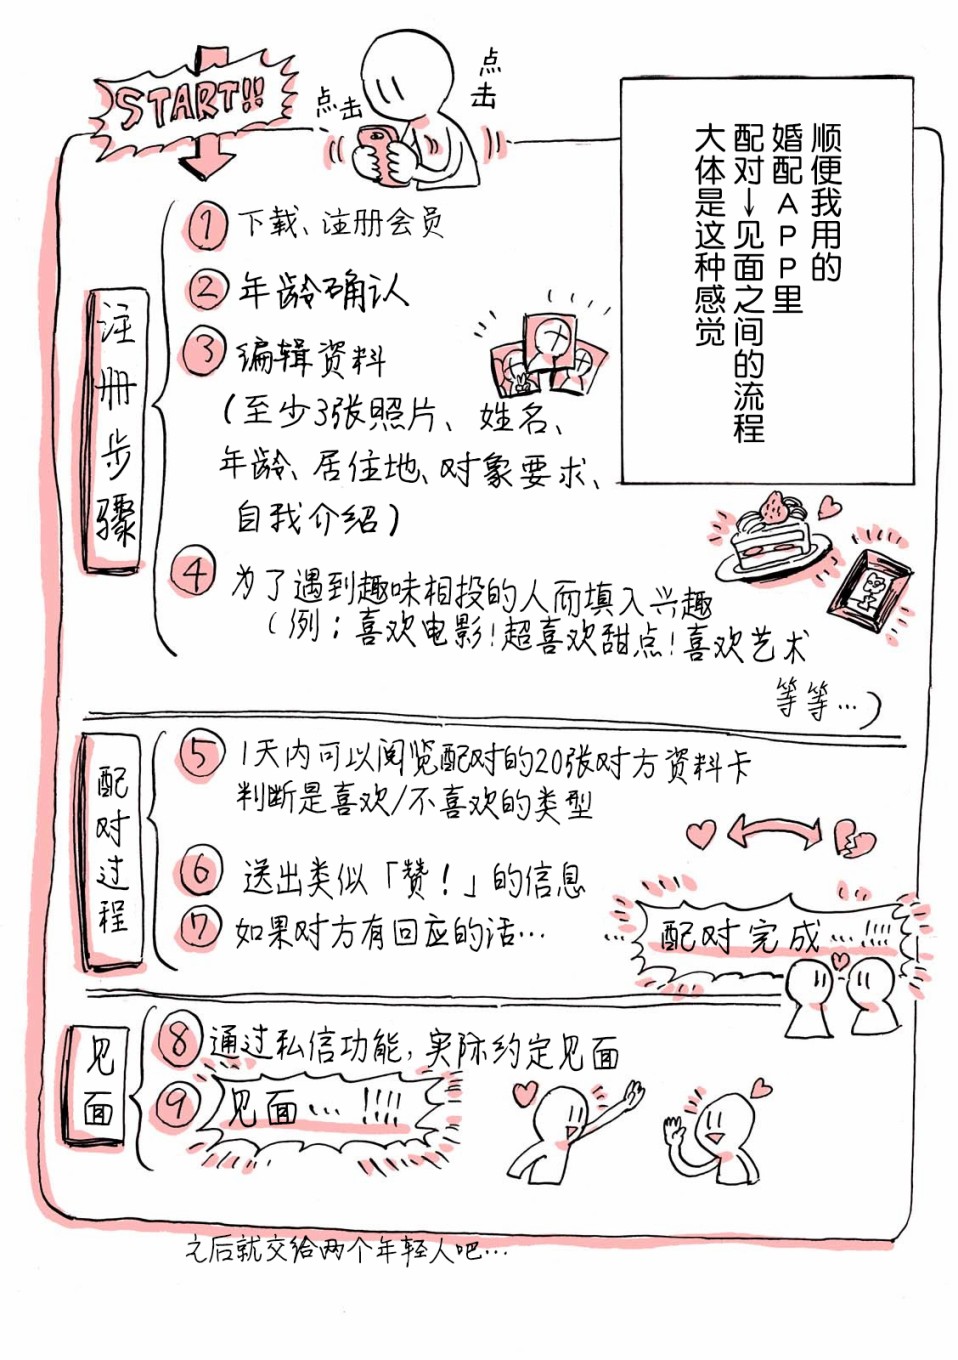 START!!
点击
点击
顺便我用的
婚配APP里
配对→见面之间的流程
大体是这种感觉
注册步骤
① 下载、注册会员
② 年龄确认
③ 编辑资料
（至少3张照片、姓名、
年龄、居住地、对象要求、
自我介绍）
④ 为了遇到趣味相投的人而填入兴趣
（例：喜欢电影！超喜欢甜点！喜欢艺术
等等…）
配对过程
⑤ 1天内可以阅览配对的20张对方资料卡
判断是喜欢/不喜欢的类型
⑥ 送出类似「赞！」的信息
⑦ 如果对方有回应的话…
…配对完成…!!!!
见面
⑧ 通过私信功能,实际约定见面
⑨ 见面…!!!!
之后就交给两个年轻人吧…